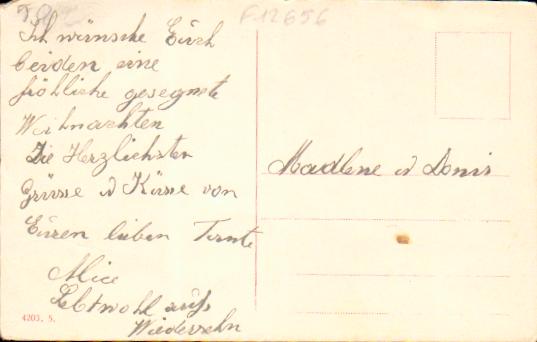 F12656
Ich wünsche Euch
beiden eine
fröhliche gesegnete
Weihnachten
Die Herzlichsten
Grüsse u Küsse von
Euren lieben Tante
Alice
Lebtwohl aufs
Wiedersehn
Madlene u Denis
4203. 5.